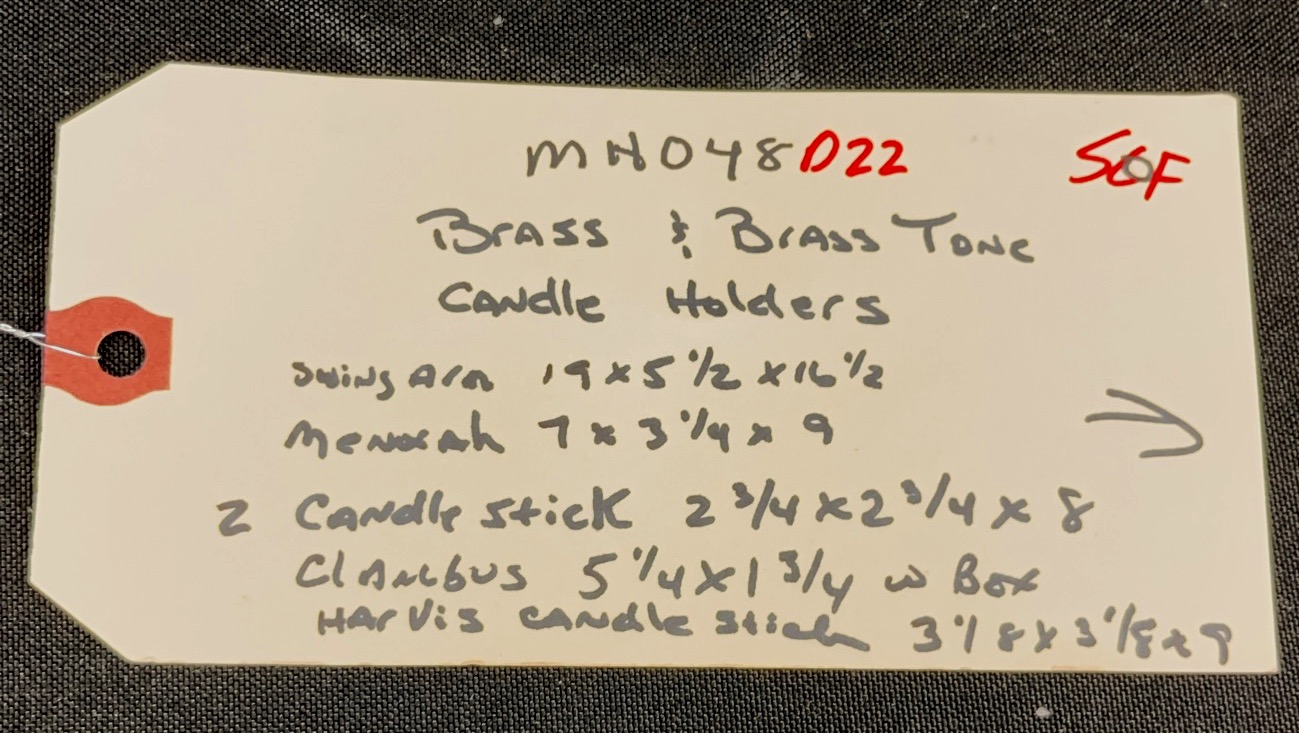 MN048D22 SGF
Brass & Brass Tone
Candle Holders
Swing Arm 19 x 5 1/2 x 16 1/2
Menorah 7 x 3 1/4 x 9
2 Candle stick 2 3/4 x 2 3/4 x 8
5 1/4 x 1 3/4 w Box
Harvis candle stick 3 1/8 x 3 1/8 x 9